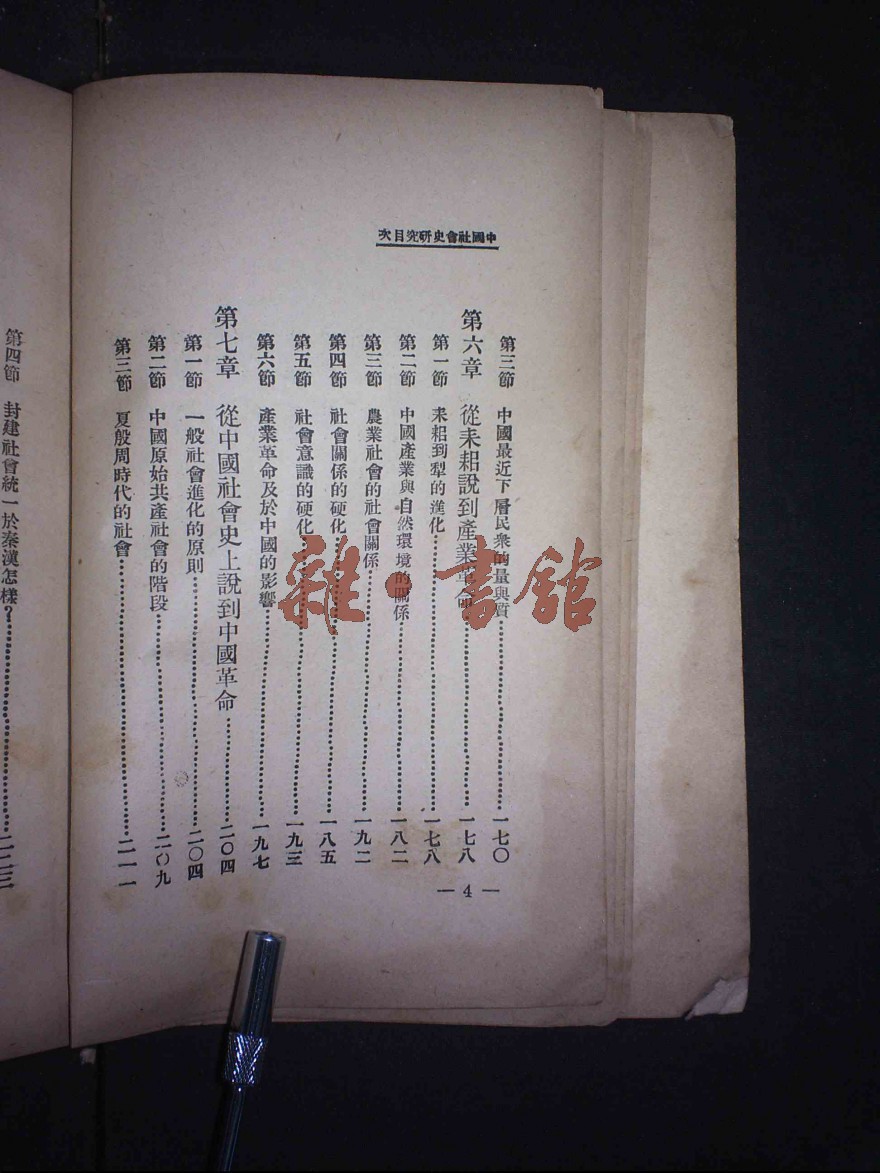 中國社會史研究目次
第三節 中國最近下層民衆的量與質…………一七〇
第六章 從耒耜說到產業革命…………一七八
第一節 耒耜到犁的進化…………一七八
第二節 中國產業與自然環境的關係…………一八二
第三節 農業社會的社會關係…………一九二
第四節 社會關係的硬化…………一八五
第五節 社會意識的硬化…………一九三
第六節 產業革命及於中國的影響…………一九七
第七章 從中國社會史上說到中國革命…………二〇四
第一節 一般社會進化的原則…………二〇四
第二節 中國原始共產社會的階段…………二〇九
第三節 夏般周時代的社會…………二一一
— 4 —
第四節 封建社會統一於秦漢怎樣？…………二二三
雜·書館